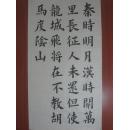 秦時明月漢時關萬
里長征人未還但使
龍城飛將在不教胡
馬度陰山